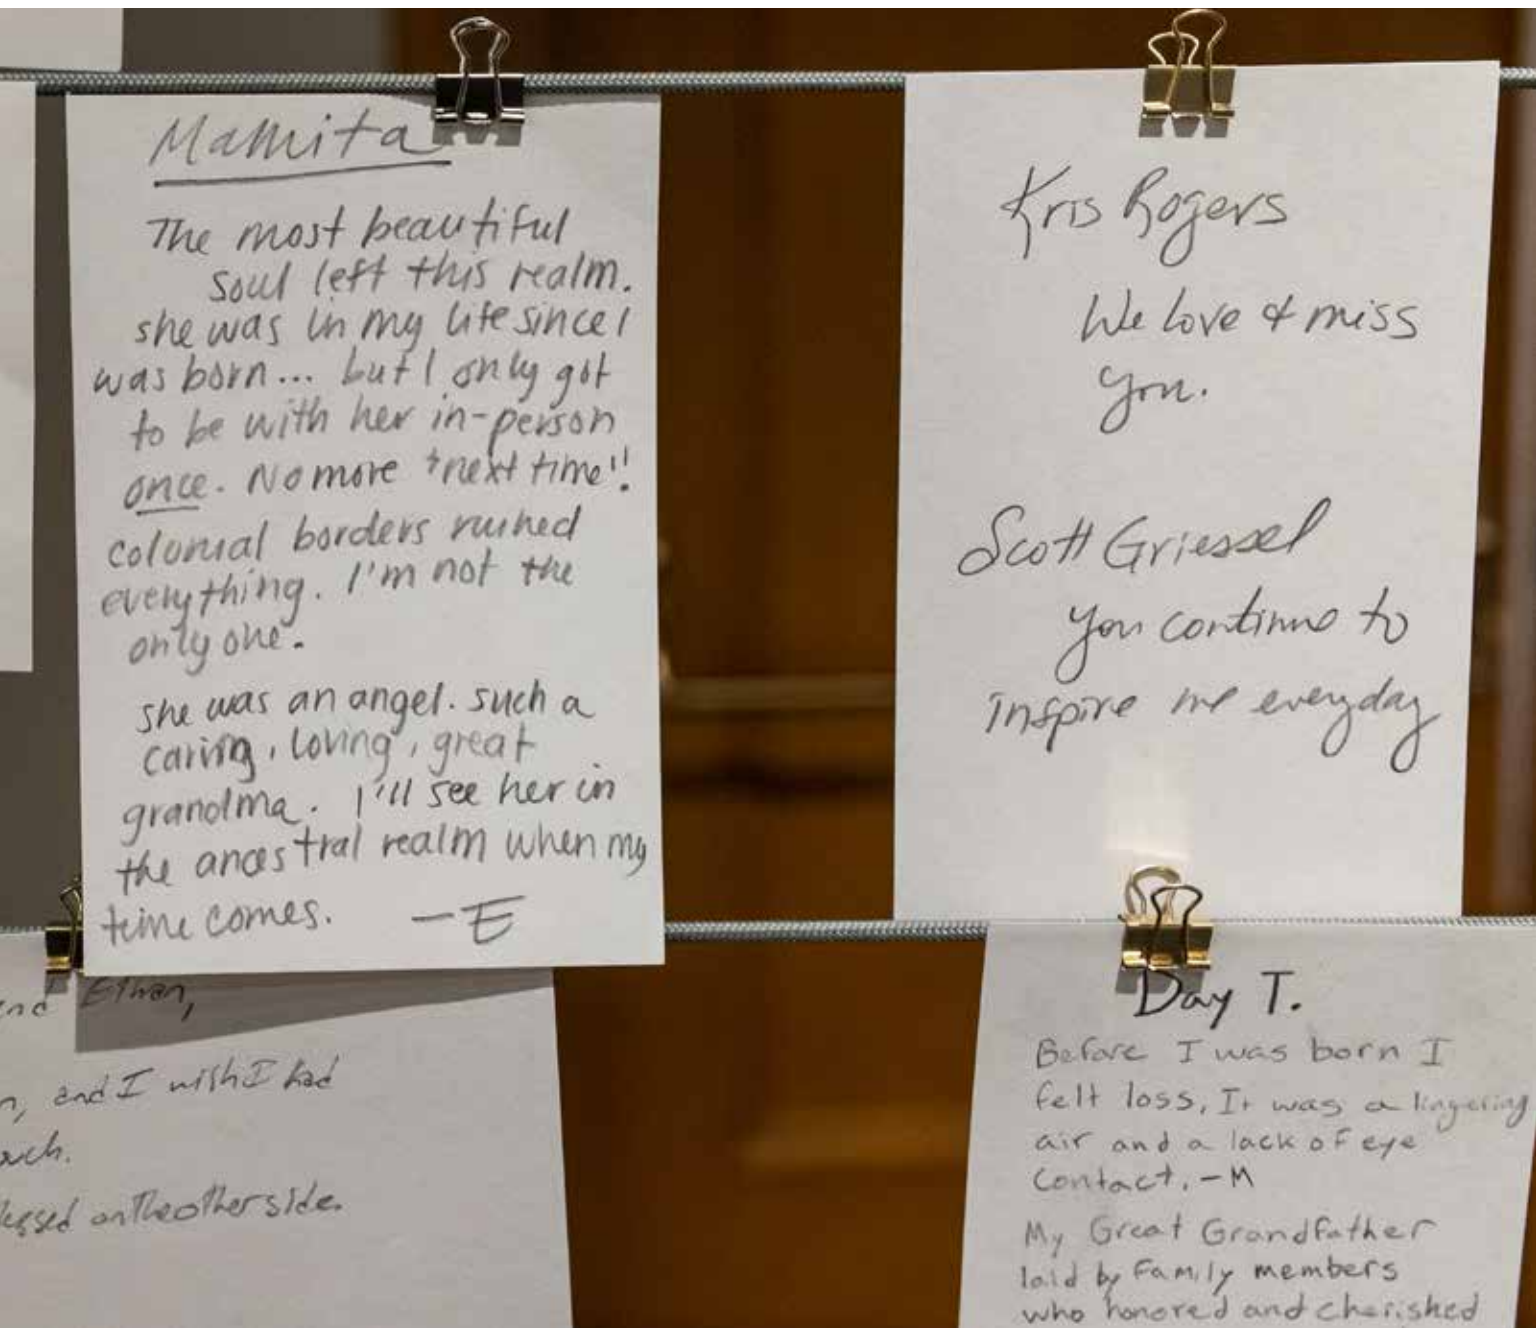 Mamita
The most beautiful
soul left this realm.
she was in my life since I
was born... but I only got
to be with her in-person
once. No more "next time"!
colonial borders ruined
everything. I'm not the
only one.
she was an angel. such a
caring, loving, great
grandma. I'll see her in
the ancestral realm when my
time comes. -E
Kris Rogers
We love & miss
you.
Scott Griessel
you continue to
inspire me everyday
Ethan,
and I wish I had
on the other side.
Day T.
Before I was born I
felt loss, It was a lingering
air and a lack of eye
contact. - M
My Great Grandfather
laid by family members
who honored and cherished